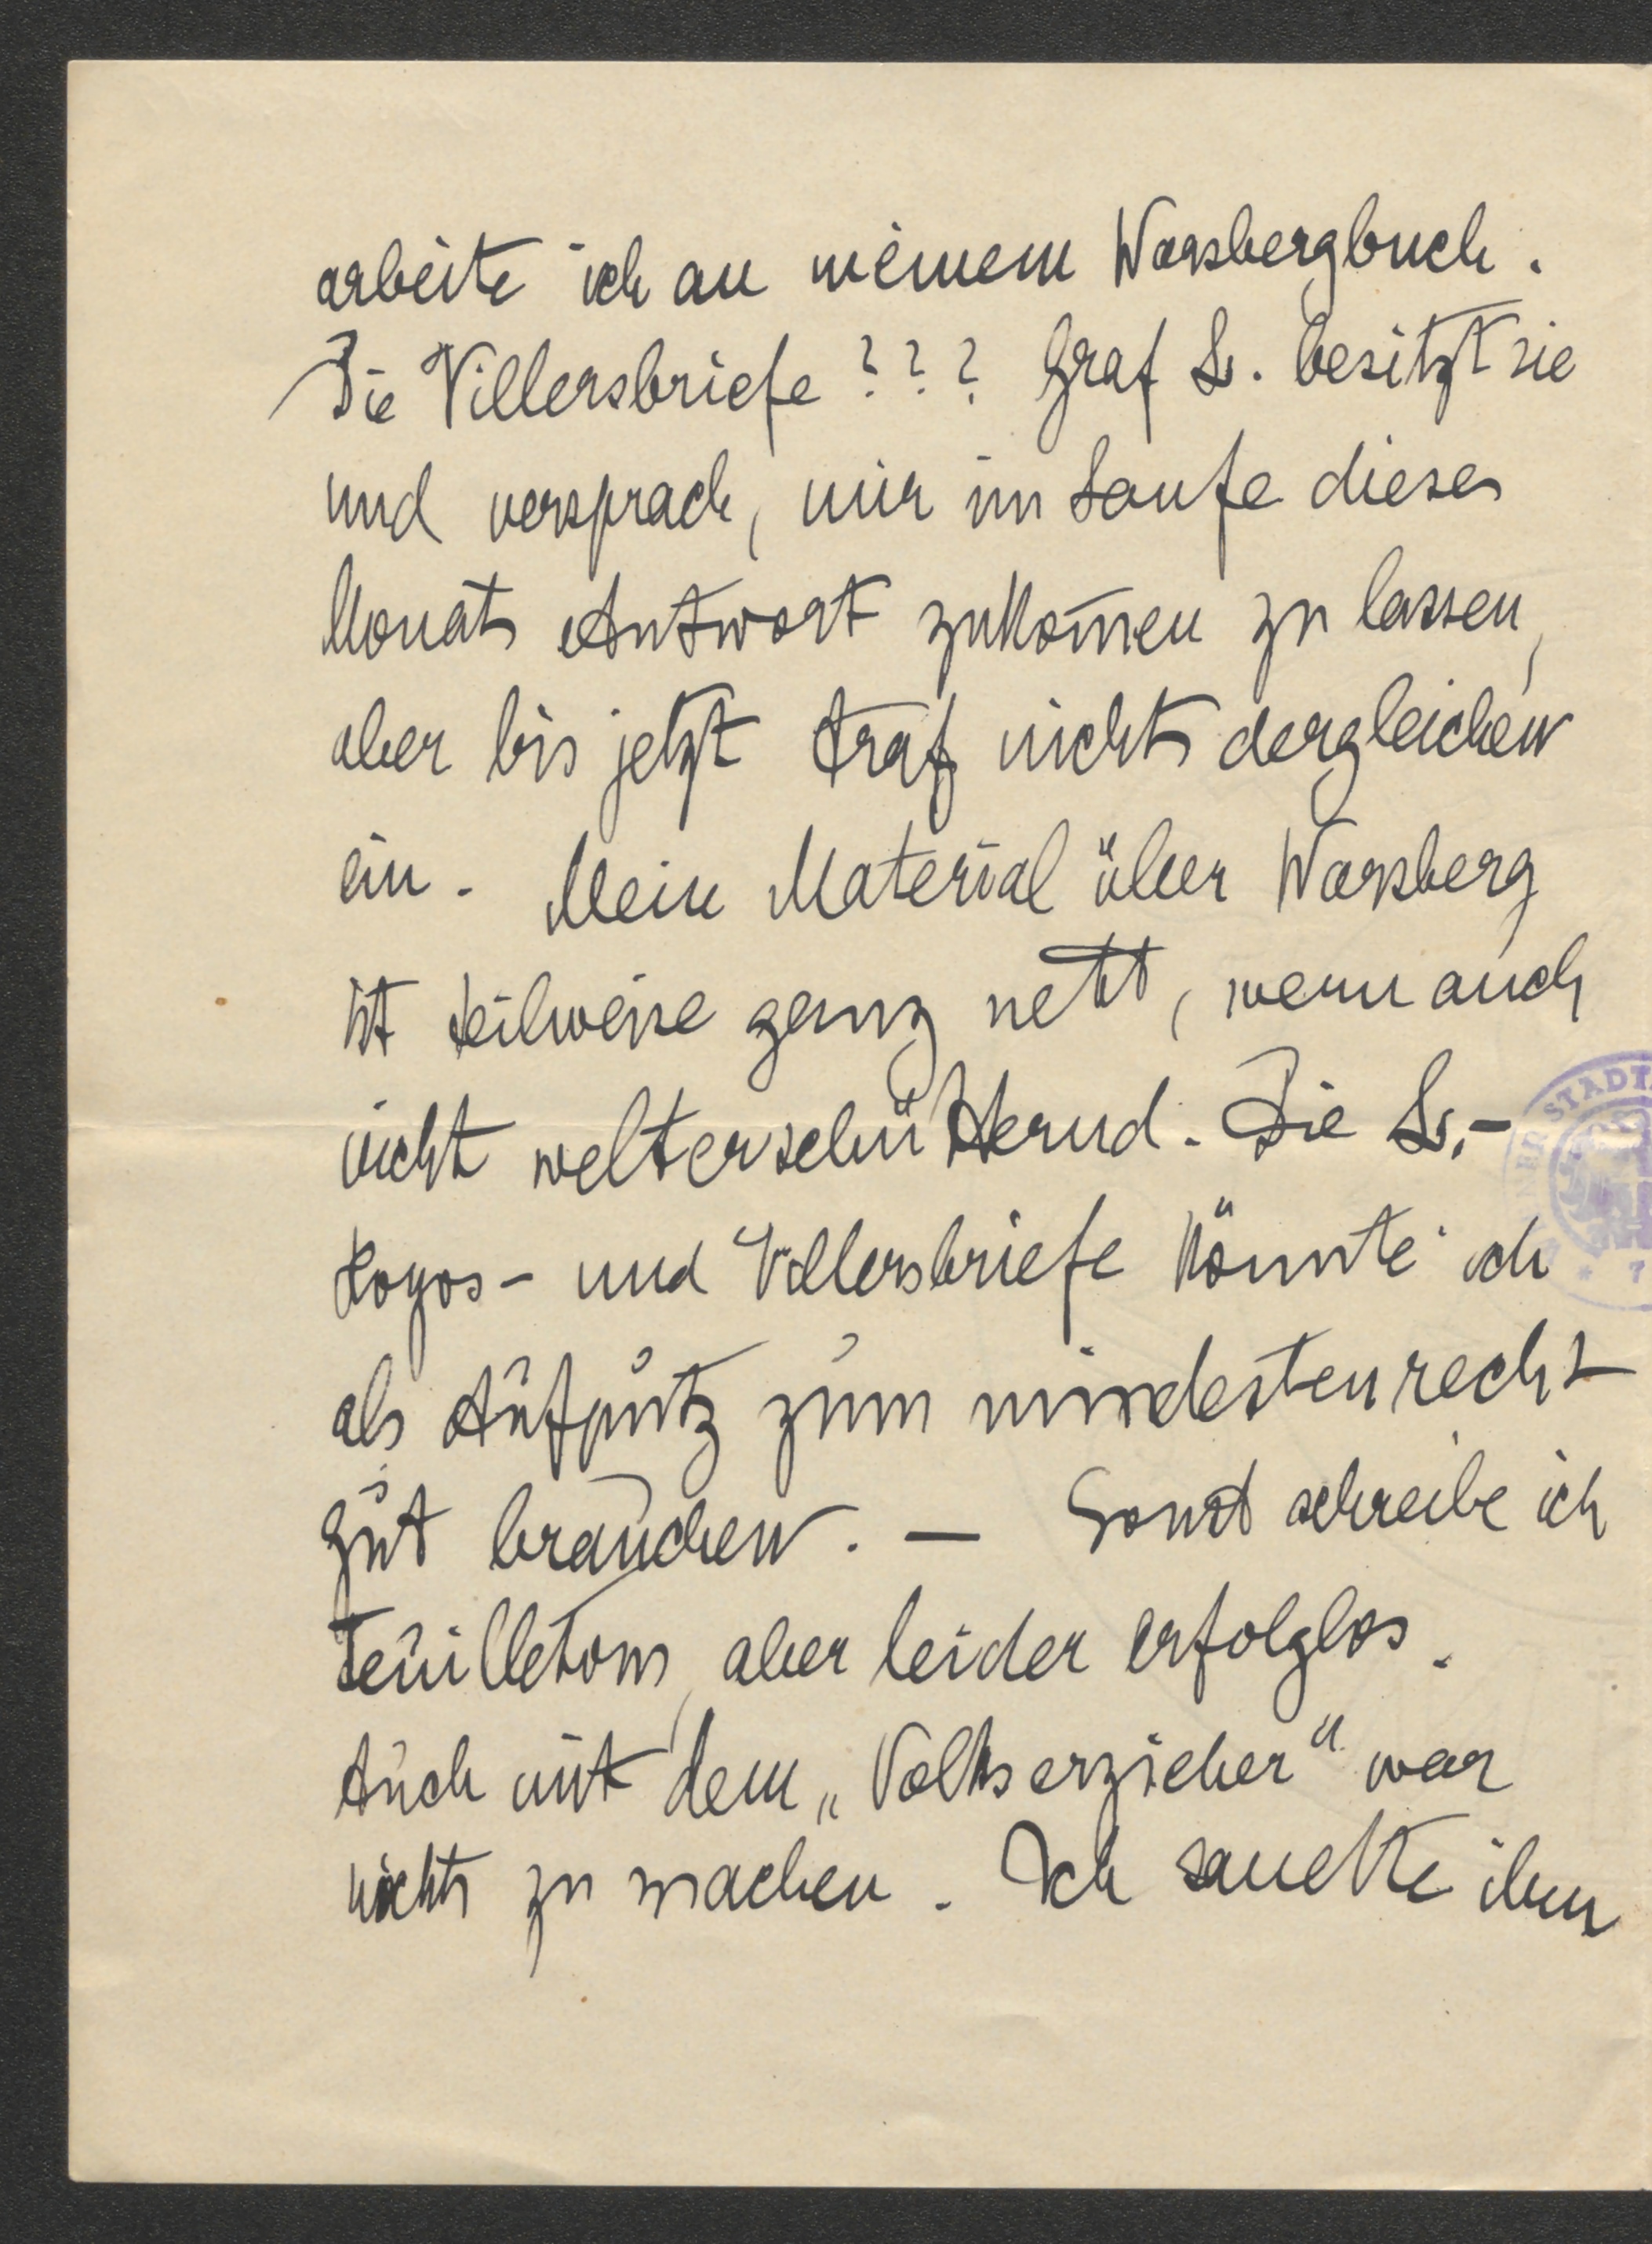 arbeite ich an meinem Warsbergbuch.
Die Villersbriefe??? Graf L. besitzt sie
und versprach, mir im Laufe dieses
Monats Antwort zukom̄en zu lassen,
aber bis jetzt traf nichts dergleichen
ein. Mein Material über Warsberg
ist teilweise ganz nett, wenn auch
nicht welterschütternd. Die L.-
Hoyos- und Villersbriefe könnte ich
als Aufputz zum mindesten recht
gut brauchen. — Sonst schreibe ich
Feuilletons, aber leider erfolglos.
Auch mit dem „Volkserzieher“ war
nichts zu machen. Ich sandte ihm
STADT
* 7